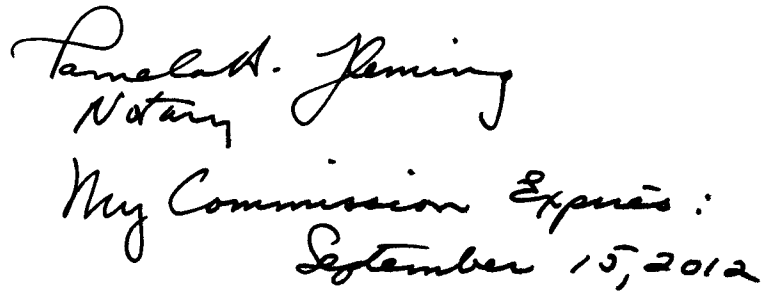 Pamela H. Fleming
Notary
My Commission Expires:
September 15, 2012